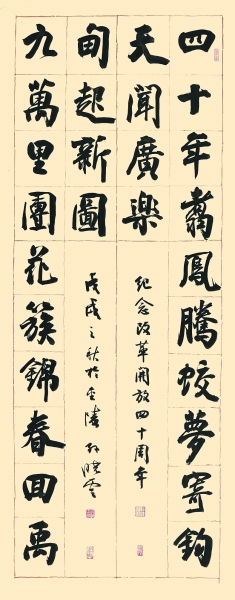 四十年翥鳳騰蛟夢寄鈞
天聞廣樂
紀念改革開放四十周年
九萬里團花簇錦春回禹
甸起新圖
戊戌之秋於金陵孫曉雲